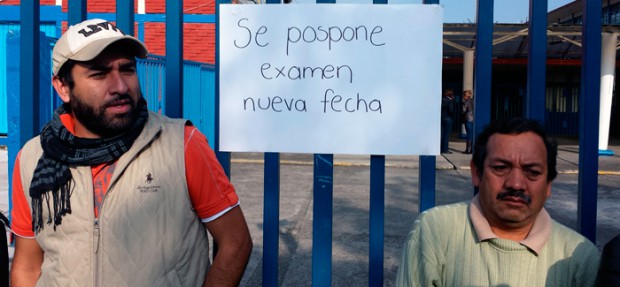 Se pospone
examen
nueva fecha